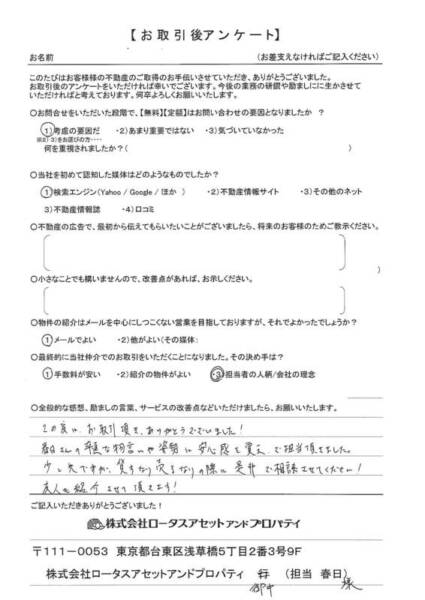 【お取引後アンケート】
お名前 (お差支えなければご記入ください)
このたびはお客様様の不動産のご取得のお手伝いさせていただき、ありがとうございました。
お取引後のアンケートをいただければ幸いでございます。今後の業務の研鑽や励ましに生かさせて
いただければと考えております。何卒よろしくお願いいたします。
○お問合せをいただいた段階で、【無料】【定額】はお問い合わせの要因となりましたか ?
1)考慮の要因だ ・2)あまり重要ではない ・3)気づいていなかった
※2)・3)をお選びの方・・・・
何を重視されましたか?( )
○当社を初めて認知した媒体はどのようなものでしたか?
1)検索エンジン(Yahoo / Google / ほか ) ・2)不動産情報サイト ・3)その他のネット
3)不動産情報誌 ・4)口コミ
○不動産の広告で、最初から伝えてもらいたいことがございましたら、将来のお客様のためご教示ください。
)
○小さなことでも構いませんので、改善点があれば、お示しください。
○物件の紹介はメールを中心にしつこくない営業を目指しておりますが、それでよかったでしょうか?
1)メールでよい ・2)他がよい(その媒体:
○最終的に当社仲介でのお取引をいただくことになりました。その決め手は?
1)手数料が安い ・2)紹介の物件がよい ・3)担当者の人柄/会社の理念
○全般的な感想、励ましの言葉、サービスの改善点などいただけましたら、お願いいたします。
この度は、お取引頂き、ありがとうございました!
春日さんの 物言いや姿勢に 安心感を覚え、ご担当頂きました。
少し先ですが、貸すなり 売るなりの際は 是非 ご相談させてください!
友人も紹介させて頂きます!
ご記入いただきありがとうございました!
株式会社ロータスアセットアンドプロパティ
〒111-0053 東京都台東区浅草橋5丁目2番3号9F
株式会社ロータスアセットアンドプロパティ 行 (担当 春日) 様
御中